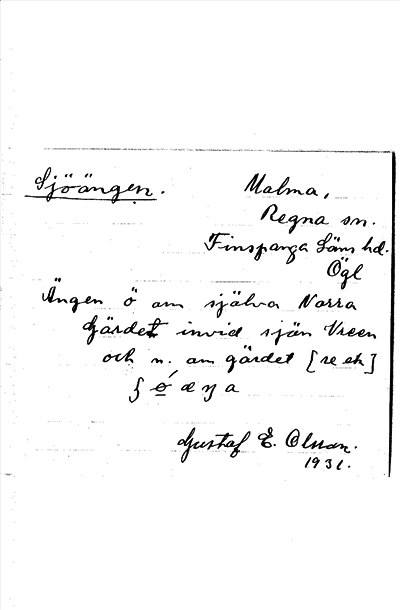 Sjöängen.
Malma,
Regna sn.
Finspånga Läns hd.
Ögl
Ängen ö om själva Norra
Gärdet invid sjön Vreen
och n. om gärdet [se ek]
Gustaf E. Olsson.
1931.